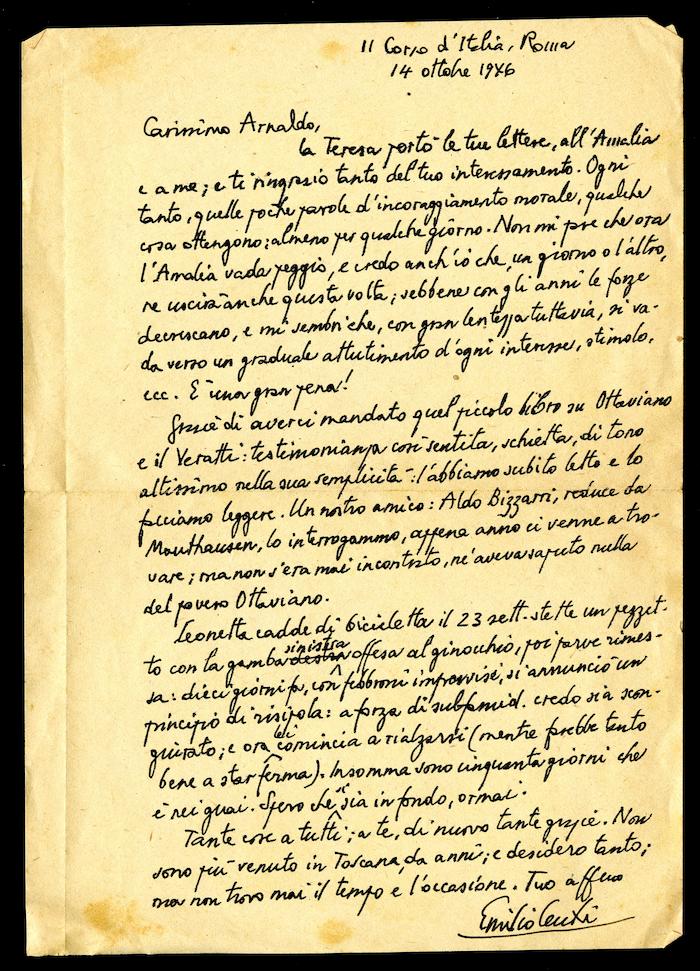 11 Corso d'Italia, Roma
14 ottobre 1946
Carissimo Arnaldo,
la Teresa portò le tue lettere, all'Amalia
e a me; e ti ringrazio tanto del tuo interessamento. Ogni
tanto, quelle poche parole d'incoraggiamento morale, qualche
cosa ottengono: almeno per qualche giorno. Non mi pare che ora
l'Amalia vada peggio, e credo anch'io che, un giorno o l'altro,
ne uscirà anche questa volta; sebbene con gli anni le forze
decrescano, e mi sembri che, con gran lentezza tuttavia, si va-
da verso un graduale attutimento d'ogni interesse, stimolo,
ecc. È una gran pena!
Grazie di averci mandato quel piccolo libro su Ottaviano
e il Veratti: testimonianza così sentita, schietta, di tono
altissimo nella sua semplicità: l'abbiamo subito letto e lo
facciamo leggere. Un nostro amico: Aldo Bizzarri, reduce da
Mauthausen, lo interrogammo, appena anno ci venne a tro-
vare; ma non s'era mai incontrato, nè aveva saputo nulla
del povero Ottaviano.
Leonetta cadde di bicicletta il 23 sett. stette un pezzet-
to con la gamba destra sinistra offesa al ginocchio, poi parve rimes-
sa: dieci giorni fa, con febbroni improvvisi, si annunciò un
principio di risipola: a forza di subamid. credo sia scon-
giurato; e ora ei comincia a rialzarsi (mentre farebbe tanto
bene a star ferma). Insomma sono cinquanta giorni che
è nei guai. Spero che si sia in fondo, ormai.
Tante cose a tutti; a te, di nuovo tante grazie. Non
sono più venuto in Toscana, da anni; e desidero tanto;
ma non trovo mai il tempo e l'occasione. Tuo affmo
Emilio Cecchi